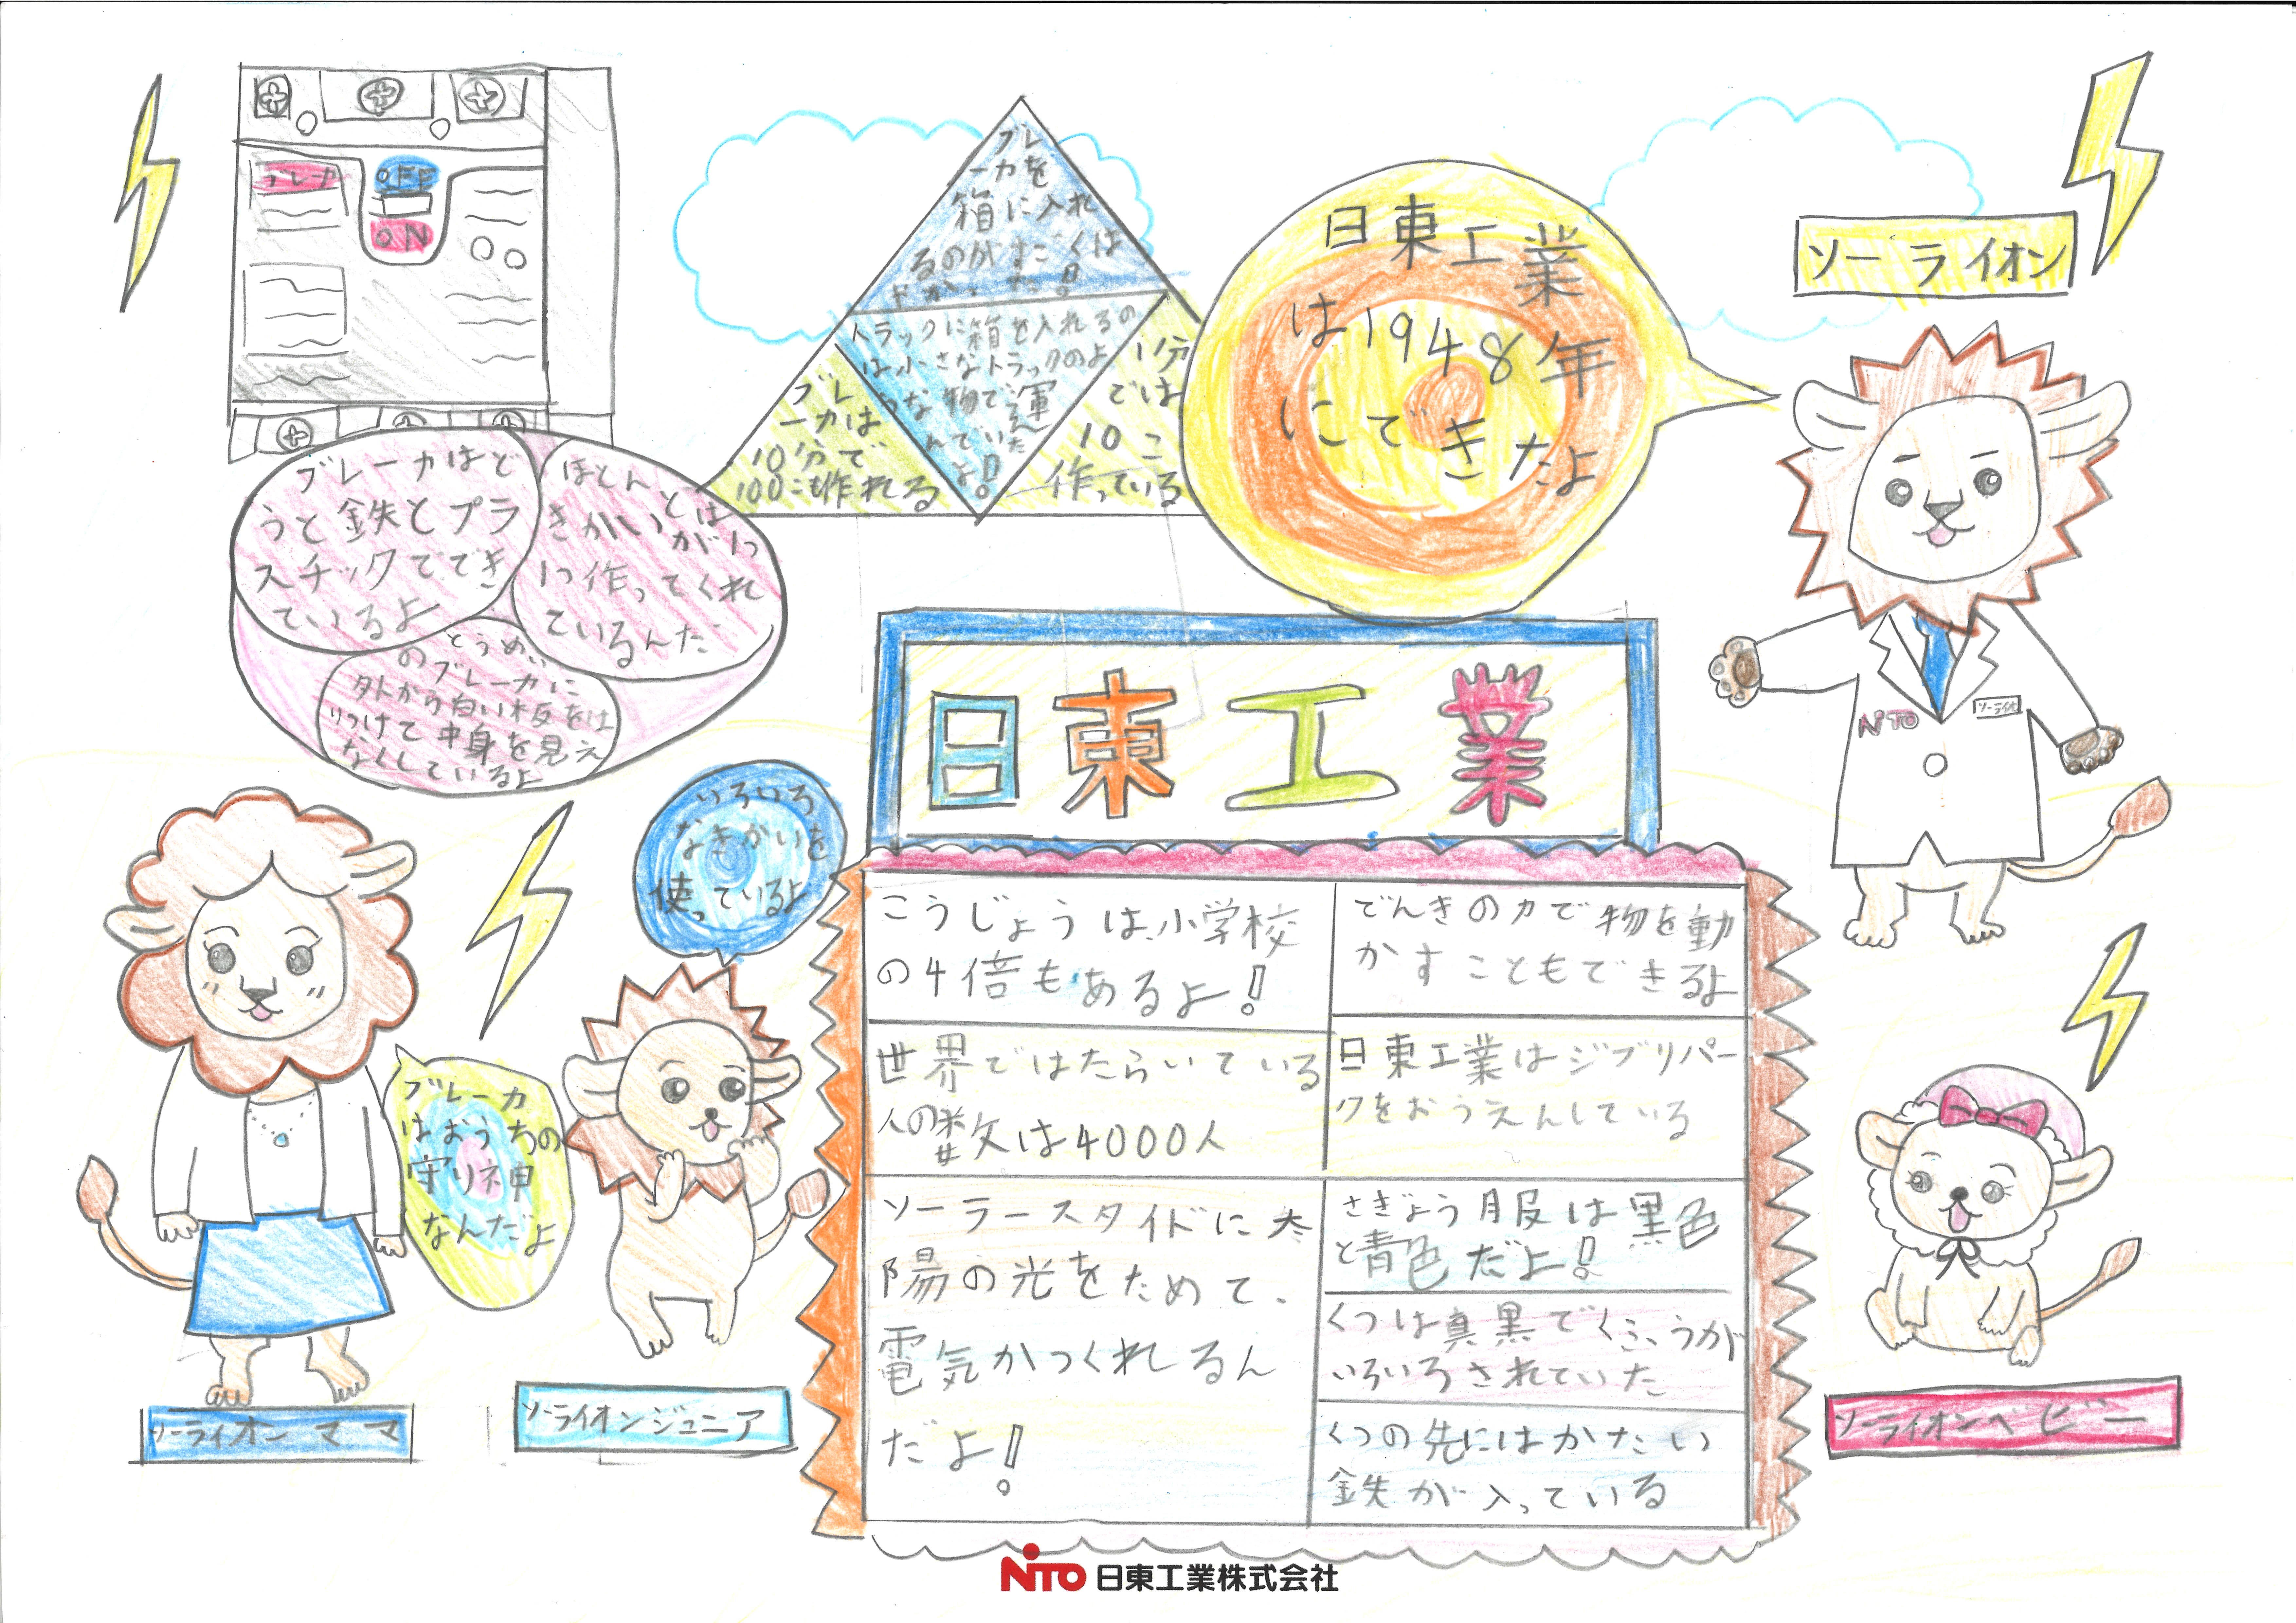 ブレーカ
OFF
ON
ブレ
ーカを
箱に入れ
トラックに箱を入れるの
は小さなトラックのよ
うな物で運
んでいた
よ!
ブレ
ーカは
10分で
100こも作れる
1分
では
10こ
作っている
日東工業
は1948年
にできたよ
ソーライオン
ブレーカはど
うと鉄とプラ
スチックででき
ているよ
ほとんどは
きかいが1つ
1つ作ってくれ
ているんだ
とうめい
のブレーカに
外から白い板をは
りつけて中身を見え
なくしているよ
日東工業
NiTO
ソーライオン
いろいろ
なきかいを
使っているよ
こうじょうは、小学校
の4倍もあるよ!
でんきの力で物を動
かすこともできるよ
世界ではたらいている
人の数は4000人
日東工業はジブリパー
クをおうえんしている
ソーラースタイドに太
陽の光をためて、
電気かつくれるん
だよ!
さぎょう服は黒色
と青色だよ!
くつは真黒でくふうが
いろいろされていた
くつの先にはかたい
鉄が入っている
ブレーカ
はおうちの
守り神
なんだよ
ソーライオンママ
ソーライオンジュニア
ソーライオンベビー
NiTO 日東工業株式会社